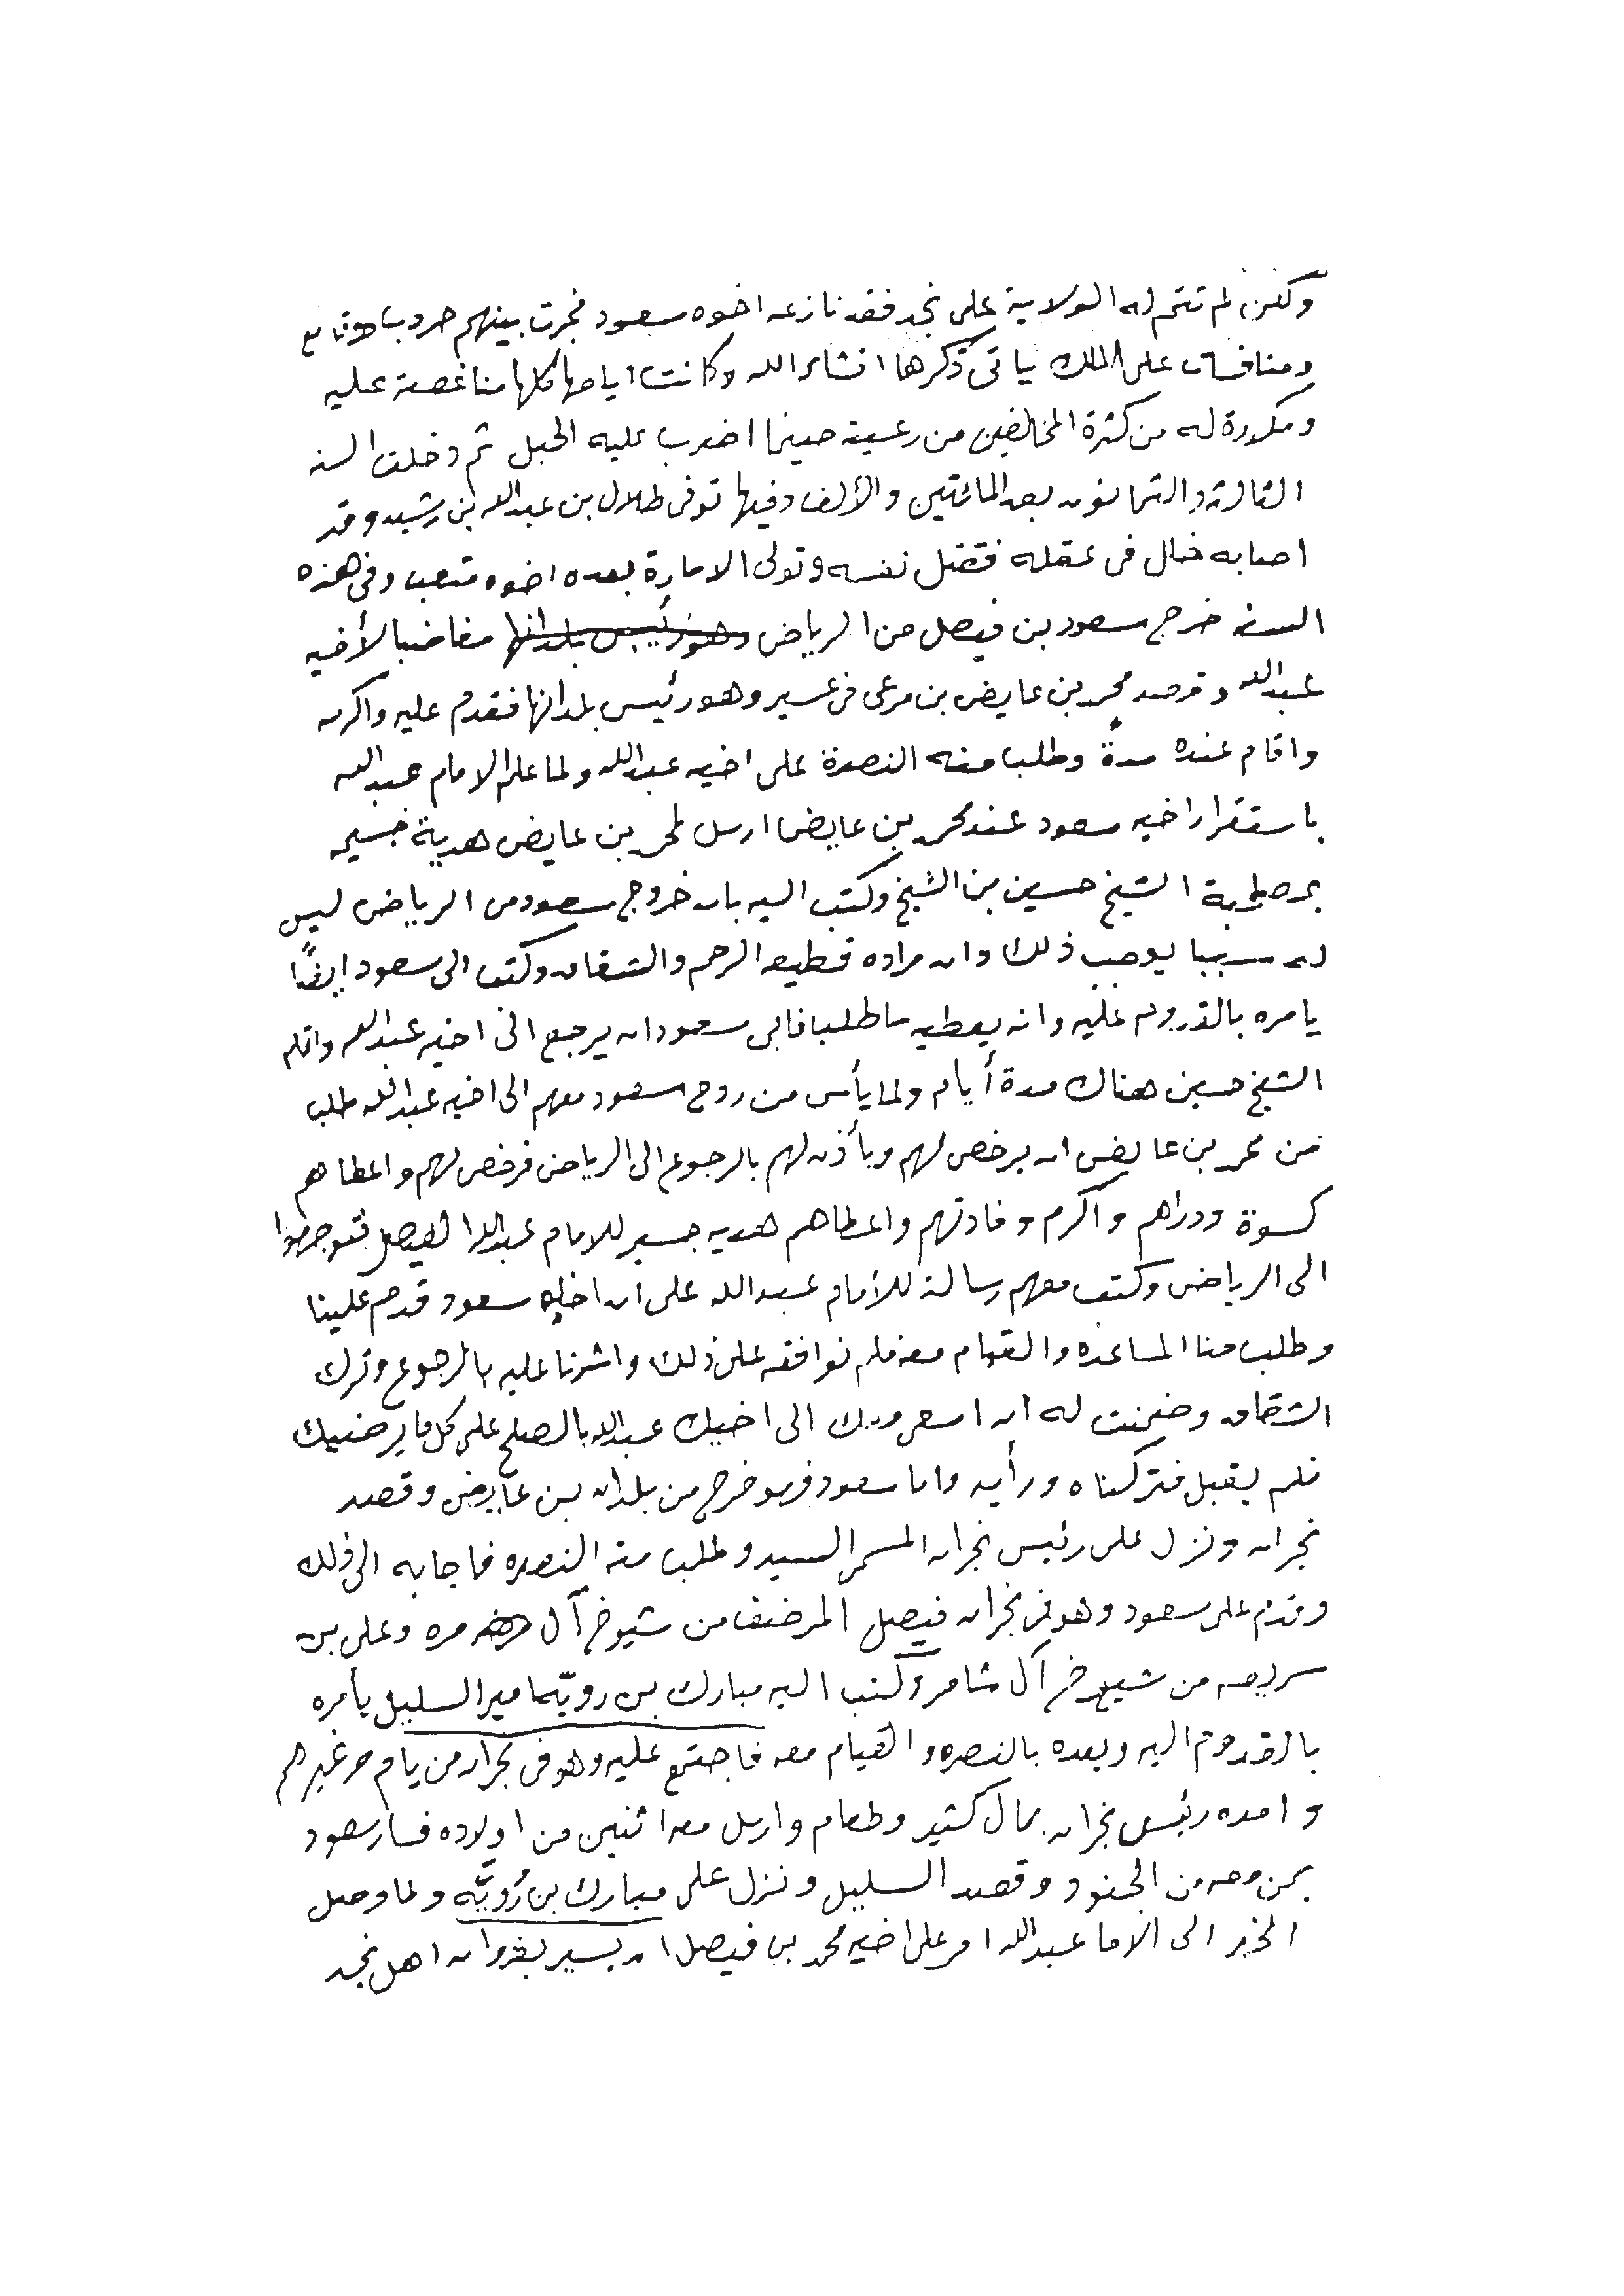 ولكن لم تتم له الولاية على نجد فقد نازعه اخوه سعود فجرت بينهم حروب وقايع
ومنافسات على الملك ياتي ذكرها انشاء الله وكانت ايامها كلها مناغصة عليه
ومكدرة له من كثرة المخالفين من رعيته حينما اضرب عليه الحبل ثم دخلت السنه
الثالثة والثمانون بعد المائتين والألف وفيها توفى طلال بن عبدالله بن رشيد وقد
اصابه خلل في عقله فقتل نفسه وتولى الامارة بعده اخوه متعب وفي هذه
السنة خرج سعود بن فيصل من الرياض وهو رئيس بلدانها مغاضبا لأخيه
عبدالله وقصد محمد بن عايض بن مرعى في عسير وهو رئيس بلدانها فقدم عليه واكرمه
واقام عنده مدة وطلب منه النصرة على اخيه عبدالله ولما علم الامام عبدالله
باستقرار اخيه سعود عند محمد بن عايض ارسل لمحمد بن عايض هدية جسيمه
الشيخ حسين بن الشيخ وكتب اليه بان خروج سعود من الرياض ليس
له سببا يوجب ذلك وان مراده قطيعه الرحم والشقاق وكتب الى سعود ايضًا
يامره بالقدوم عليه وانه يعطيه ما طلب فابى سعود ان يرجع الى اخيه عبدالله واقام
الشيخ حسين هناك مدة أيام ولما يأس من روح سعود معهم الى اخيه عبدالله طلب
من محمد بن عايض ان يرخص لهم ويأذن لهم بالرجوع الى الرياض فرخص لهم واعطاهم
كسوة ودراهم واكرم وفادتهم واعطاهم هديه للامام عبدالله الفيصل فتوجهوا
الى الرياض وكتب معهم رسالة للأمام عبدالله على ان اخاه سعود قدم علينا
وطلب منا المساعده والقيام معه فلم نوافقه على ذلك واشرنا عليه بالرجوع وترك
الشقاق وضمنت له ان اسعى الى اخيك عبدالله بالصلح على كل ما يرضيك
فلم يقبل فتركناه ورأيه واما سعود فهو خرج من بلدان بن عايض وقصد
نجران ونزل على رئيس نجران المسمى السيد وطلب منه النصره فاجابه الى ذلك
وقدم على سعود وهو في نجران فيصل المرضف من شيوخ آل مره وعلى بن
سريعه من شيوخ آل شامر وكتب اليه مبارك بن رويّه امير السليل يأمره
بالقدوم اليه ويعده بالنصره والقيام معه فاجتمع عليه وهو في نجران من يام وغيرهم
وامده رئيس نجران بمال كثير وطعام وارسل معه اثنين من اولاده فسار سعود
بمن معه من الجنود وقصد السليل ونزل على مبارك بن رُويَّه ولما وصل
الخبر الى الاما عبدالله امر على اخيه محمد بن فيصل ان يسير بغزوان اهل نجد